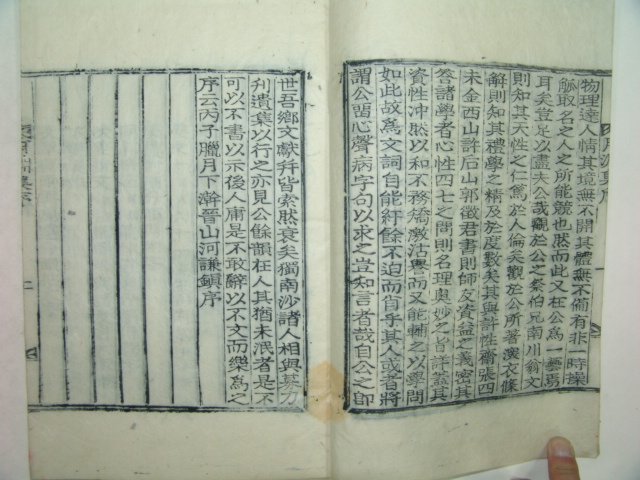 物理達人情其境無不開其體無不備有非一時操
觚取名之人之所能競也然而此又在公爲一藝焉
耳矣豈足以盡夫公哉觀於公之祭伯兄南川翁文
則知其天性之仁篤於人倫矣觀於公所著深衣條
辭則知其禮學之精及於度數矣其與許性齋張四
未金西山許后山郭徵君書則師友資益之義密其
答諸學者心性四七之問則名理奧妙之旨詳蓋其
資性冲然以和不務矯激沽譽而又能輔之以學問
如此故爲文詞自能紆餘不迫而肖乎其人或者將
謂公習心聲病字句以求之豈知言者哉自公之卽
世吾鄕文獻幷皆索然衰矣獨南沙諸人相與募力
刋遺藁以行之亦見公餘韻在人其猶未泯者是不
可以不書以示後人庸是不敢辭以不文而樂爲之
序云丙子臘月下澣晉山河謙鎭序